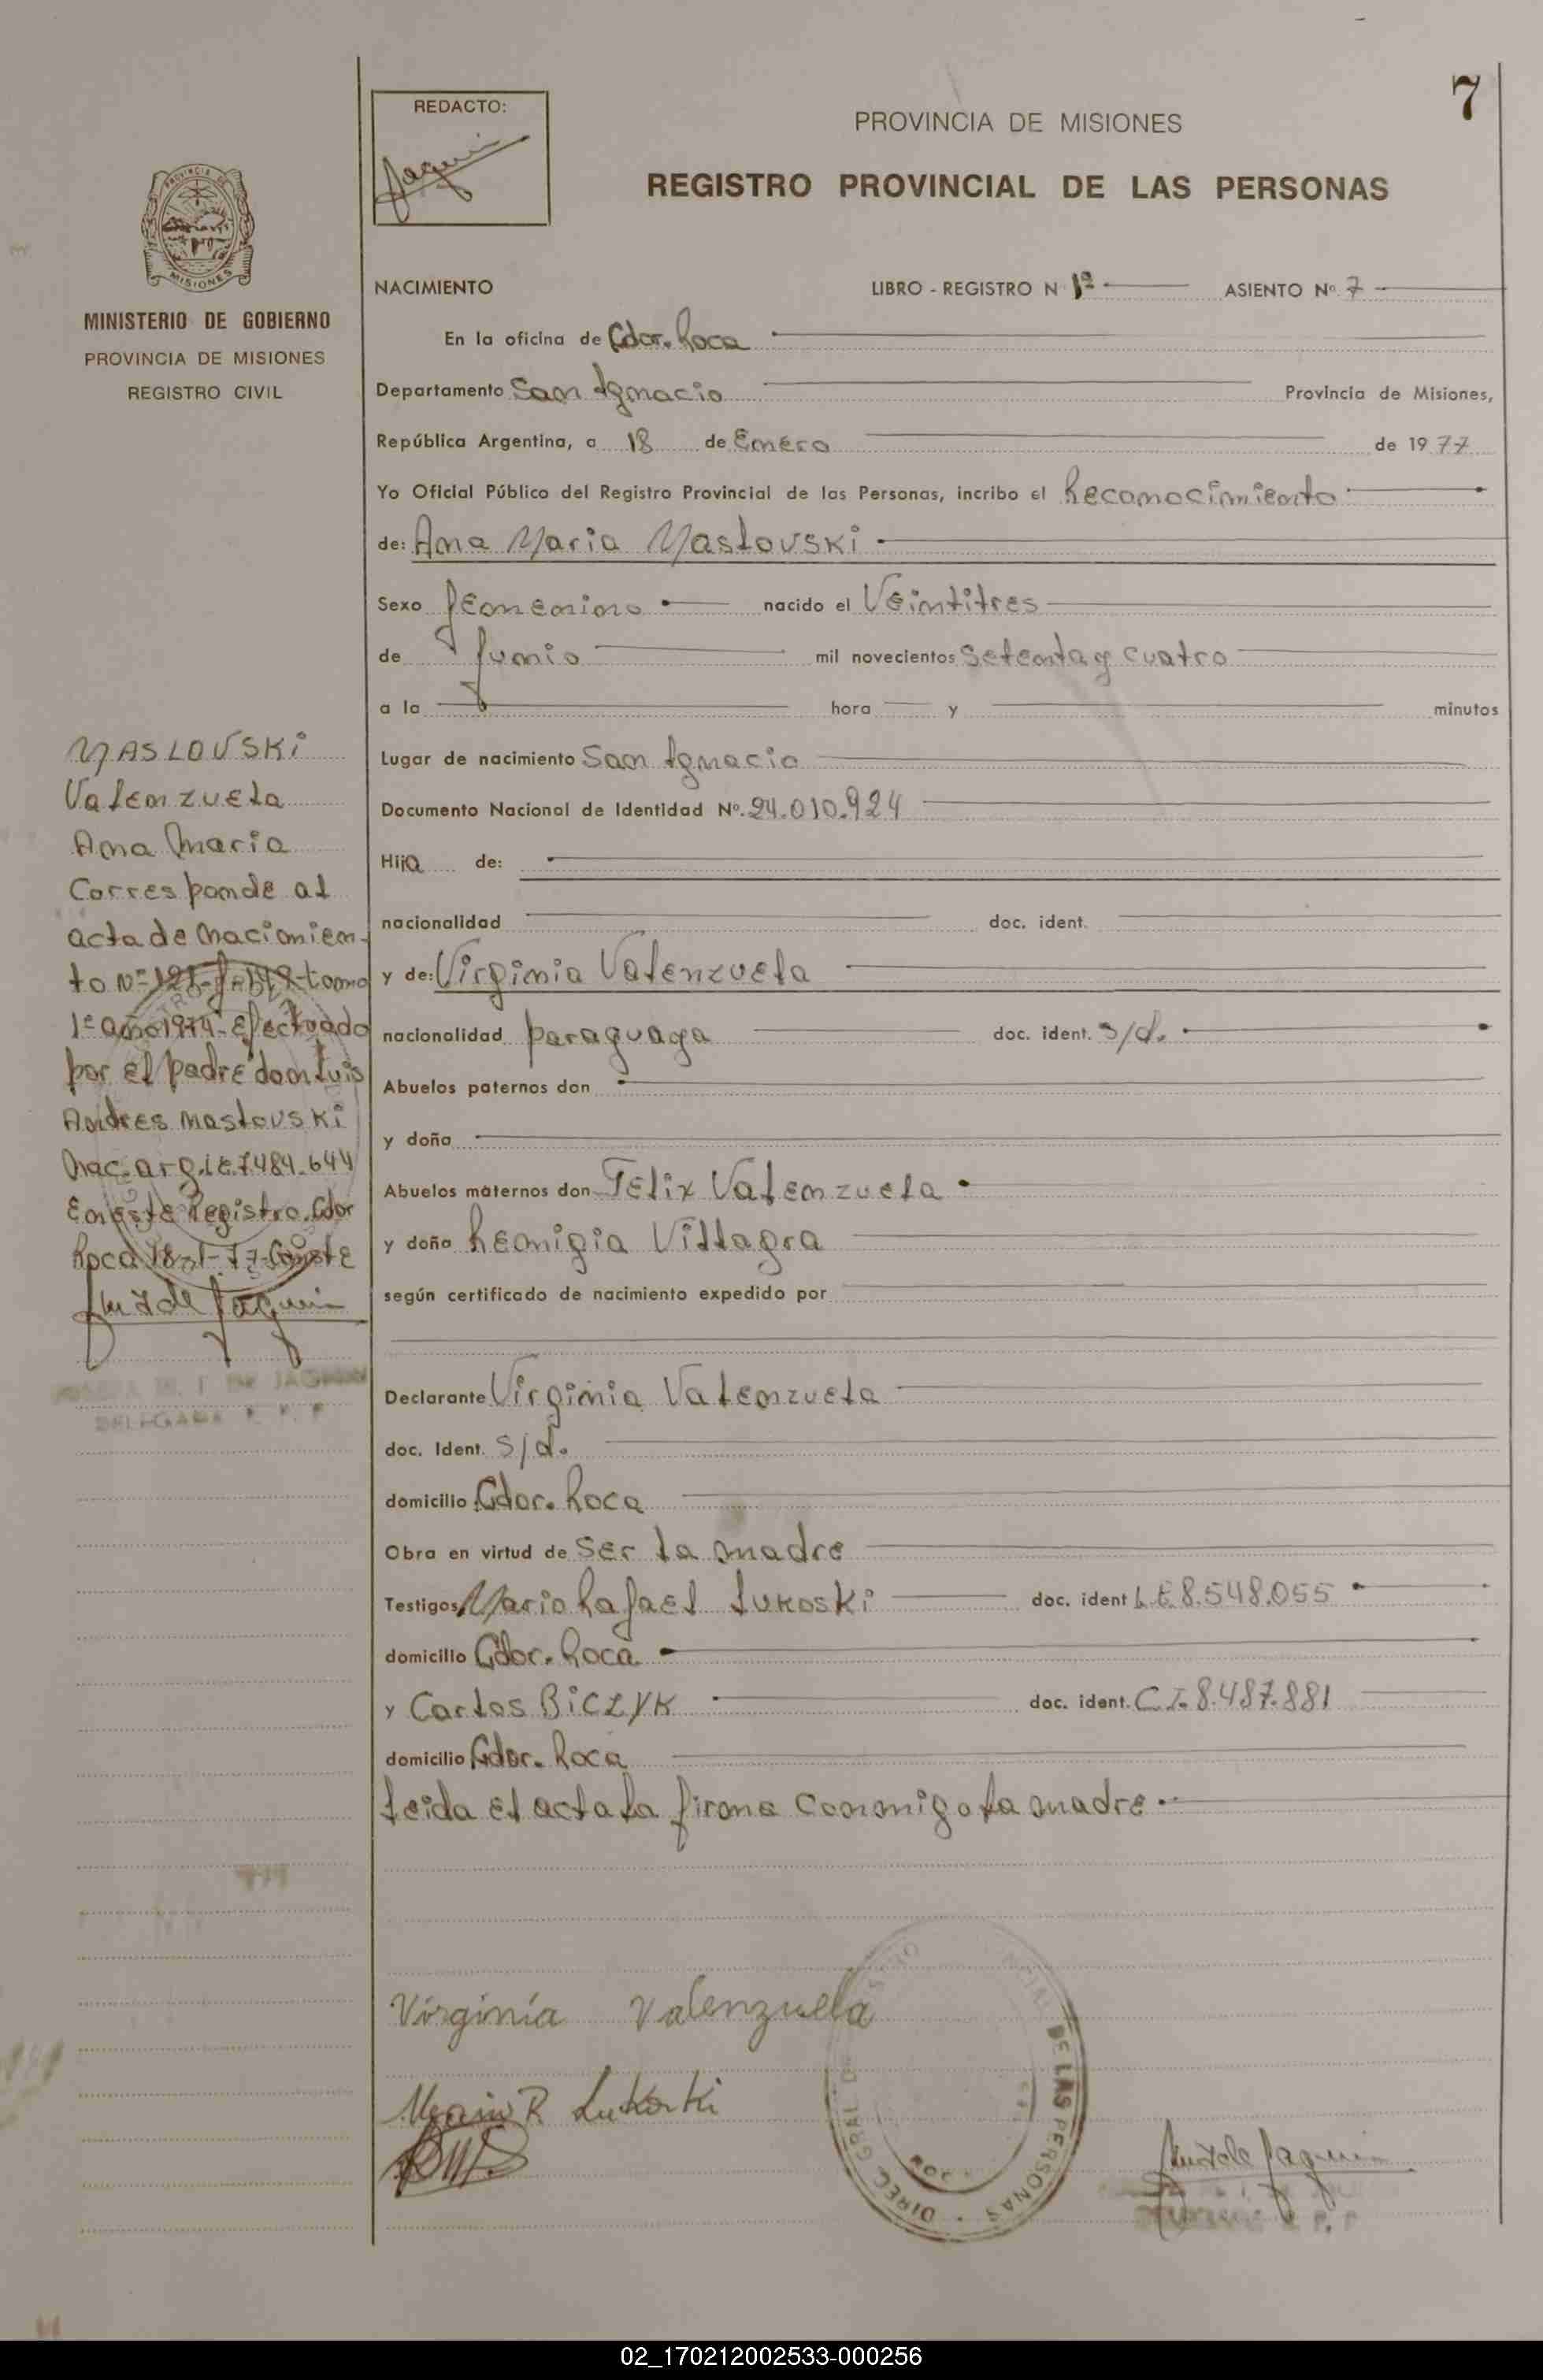 7
REDACTO:
PROVINCIA DE MISIONES
REGISTRO PROVINCIAL DE LAS PERSONAS
PROVINCIA DE
MISIONES
MINISTERIO DE GOBIERNO
PROVINCIA DE MISIONES
REGISTRO CIVIL
NACIMIENTO LIBRO - REGISTRO N 1º ASIENTO Nº 7
En la oficina de Gdor. Roca
Departamento San Ignacio Provincia de Misiones,
República Argentina, a 18 de Enero de 1977
Yo Oficial Público del Registro Provincial de las Personas, incribo el Reconocimiento
de: Ana Maria Maslovski
Sexo femenino nacido el Veintitres
de Junio mil novecientos Setenta y cuatro
a la hora y minutos
Lugar de nacimiento San Ignacio
Documento Nacional de Identidad Nº. 24.010.924
Hija de:
nacionalidad doc. ident.
y de: Virginia Valenzuela
nacionalidad paraguaya doc. ident. s/d.
Abuelos paternos don
y doña
Abuelos maternos don Felix Valenzuela
y doña Remigia Villagra
según certificado de nacimiento expedido por
Declarante Virginia Valenzuela
doc. Ident. S/d.
domicilio Gdor. Roca
Obra en virtud de ser la madre
Testigos Mario Rafael Lukoski doc. ident L.E 8.548.055
domicilio Gdor. Roca
y Carlos BiCZYK doc. ident. C.I. 8.487.881
domicilio Gdor. Roca
Leida el acta la firma conmigo la madre
MASLOVSKi
Valenzuela
Ana Maria
Corresponde al
acta de nacimien-
to Nº 121- tomo
1º año 1974- Efectuado
por el padre don Luis
Andres Maslovski
Nac. arg. L.E. 7.484.644
En este Registro. Gdor
Roca 18-1-77- Conste
DE JAQUIN
DELEGADA R. P. P
Virginia Valenzuela
Mario R Lukoski
DIREC. GRAL DE DE LAS PERSONAS
ROCA
02_170212002533-000256